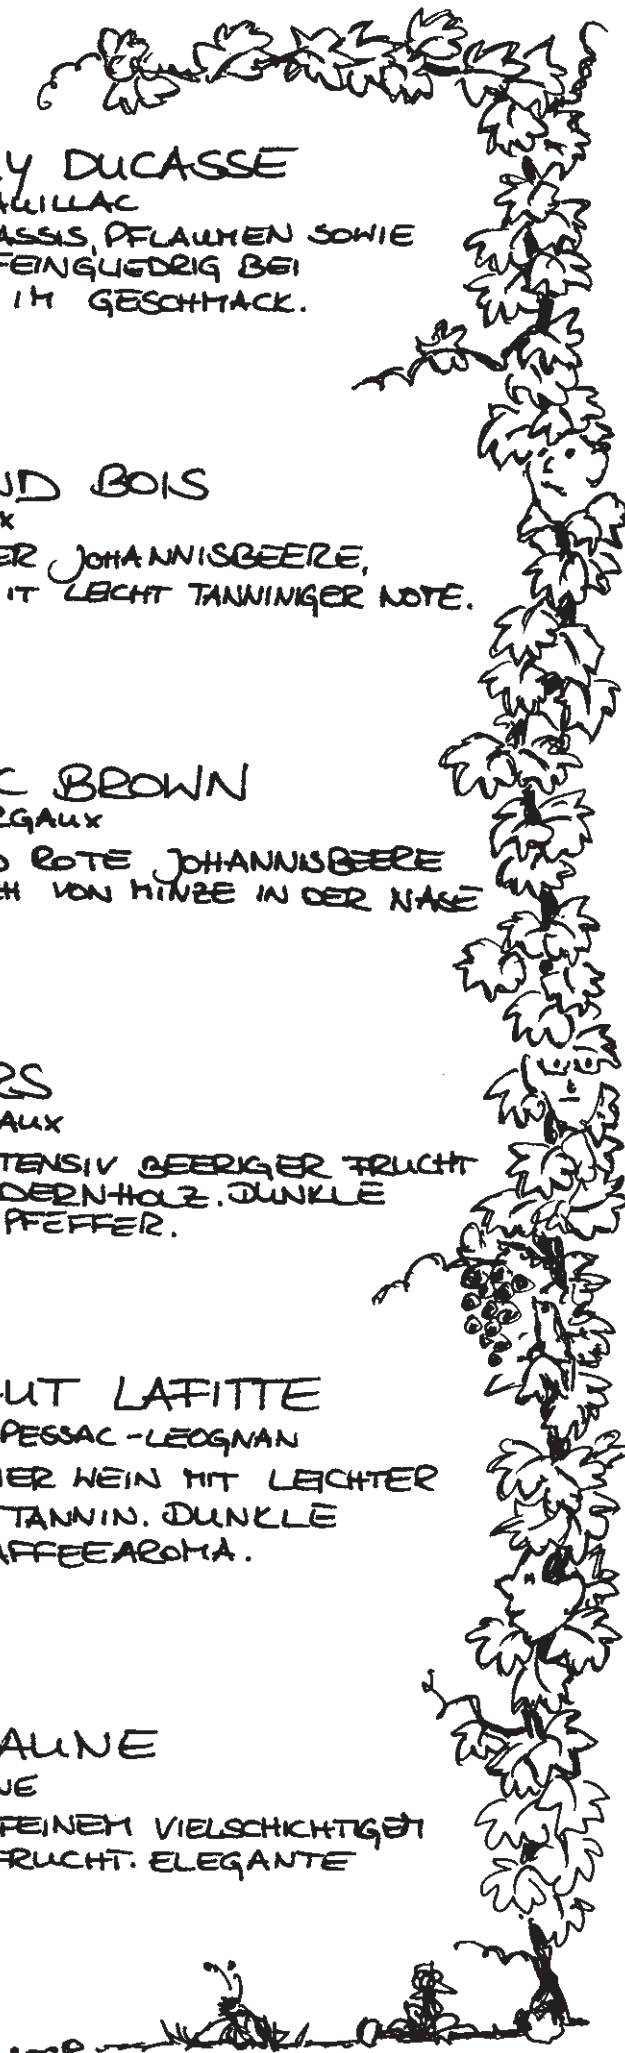 LY DUCASSE
AUILLAC
ASSIS, PFLAUMEN SOWIE
FEINGLIEDRIG BEI
IM GESCHMACK.
ND BOIS
X
ER JOHANNISBEERE,
IT LEICHT TANNINIGER NOTE.
C BROWN
RGAUX
D ROTE JOHANNISBEERE
CH VON MINZE IN DER NASE
RS
AUX
TENSIV BEERIGER FRUCHT
DERNHOLZ. DUNKLE
PFEFFER.
UT LAFITTE
PESSAC-LEOGNAN
HER WEIN MIT LEICHTER
TANNIN. DUNKLE
AFFEEAROMA.
AUNE
NE
FEINEM VIELSCHICHTIGEM
FRUCHT. ELEGANTE